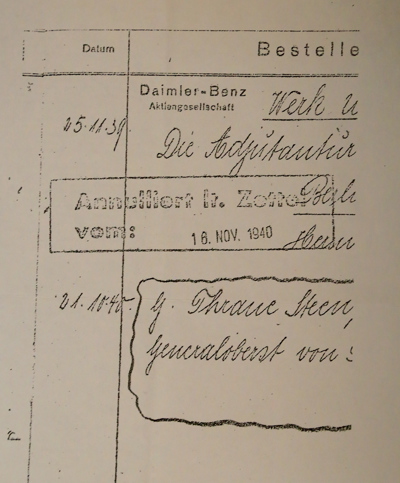 Datum Bestelle
Daimler-Benz
Aktiengesellschaft
Werk U
25.11.39
Die Adjutantur
Annulliert lt. Zettel
Berli
vom: 16. NOV. 1940
Herrn
21.10.40. G. Thrane Steen,
Generaloberst von